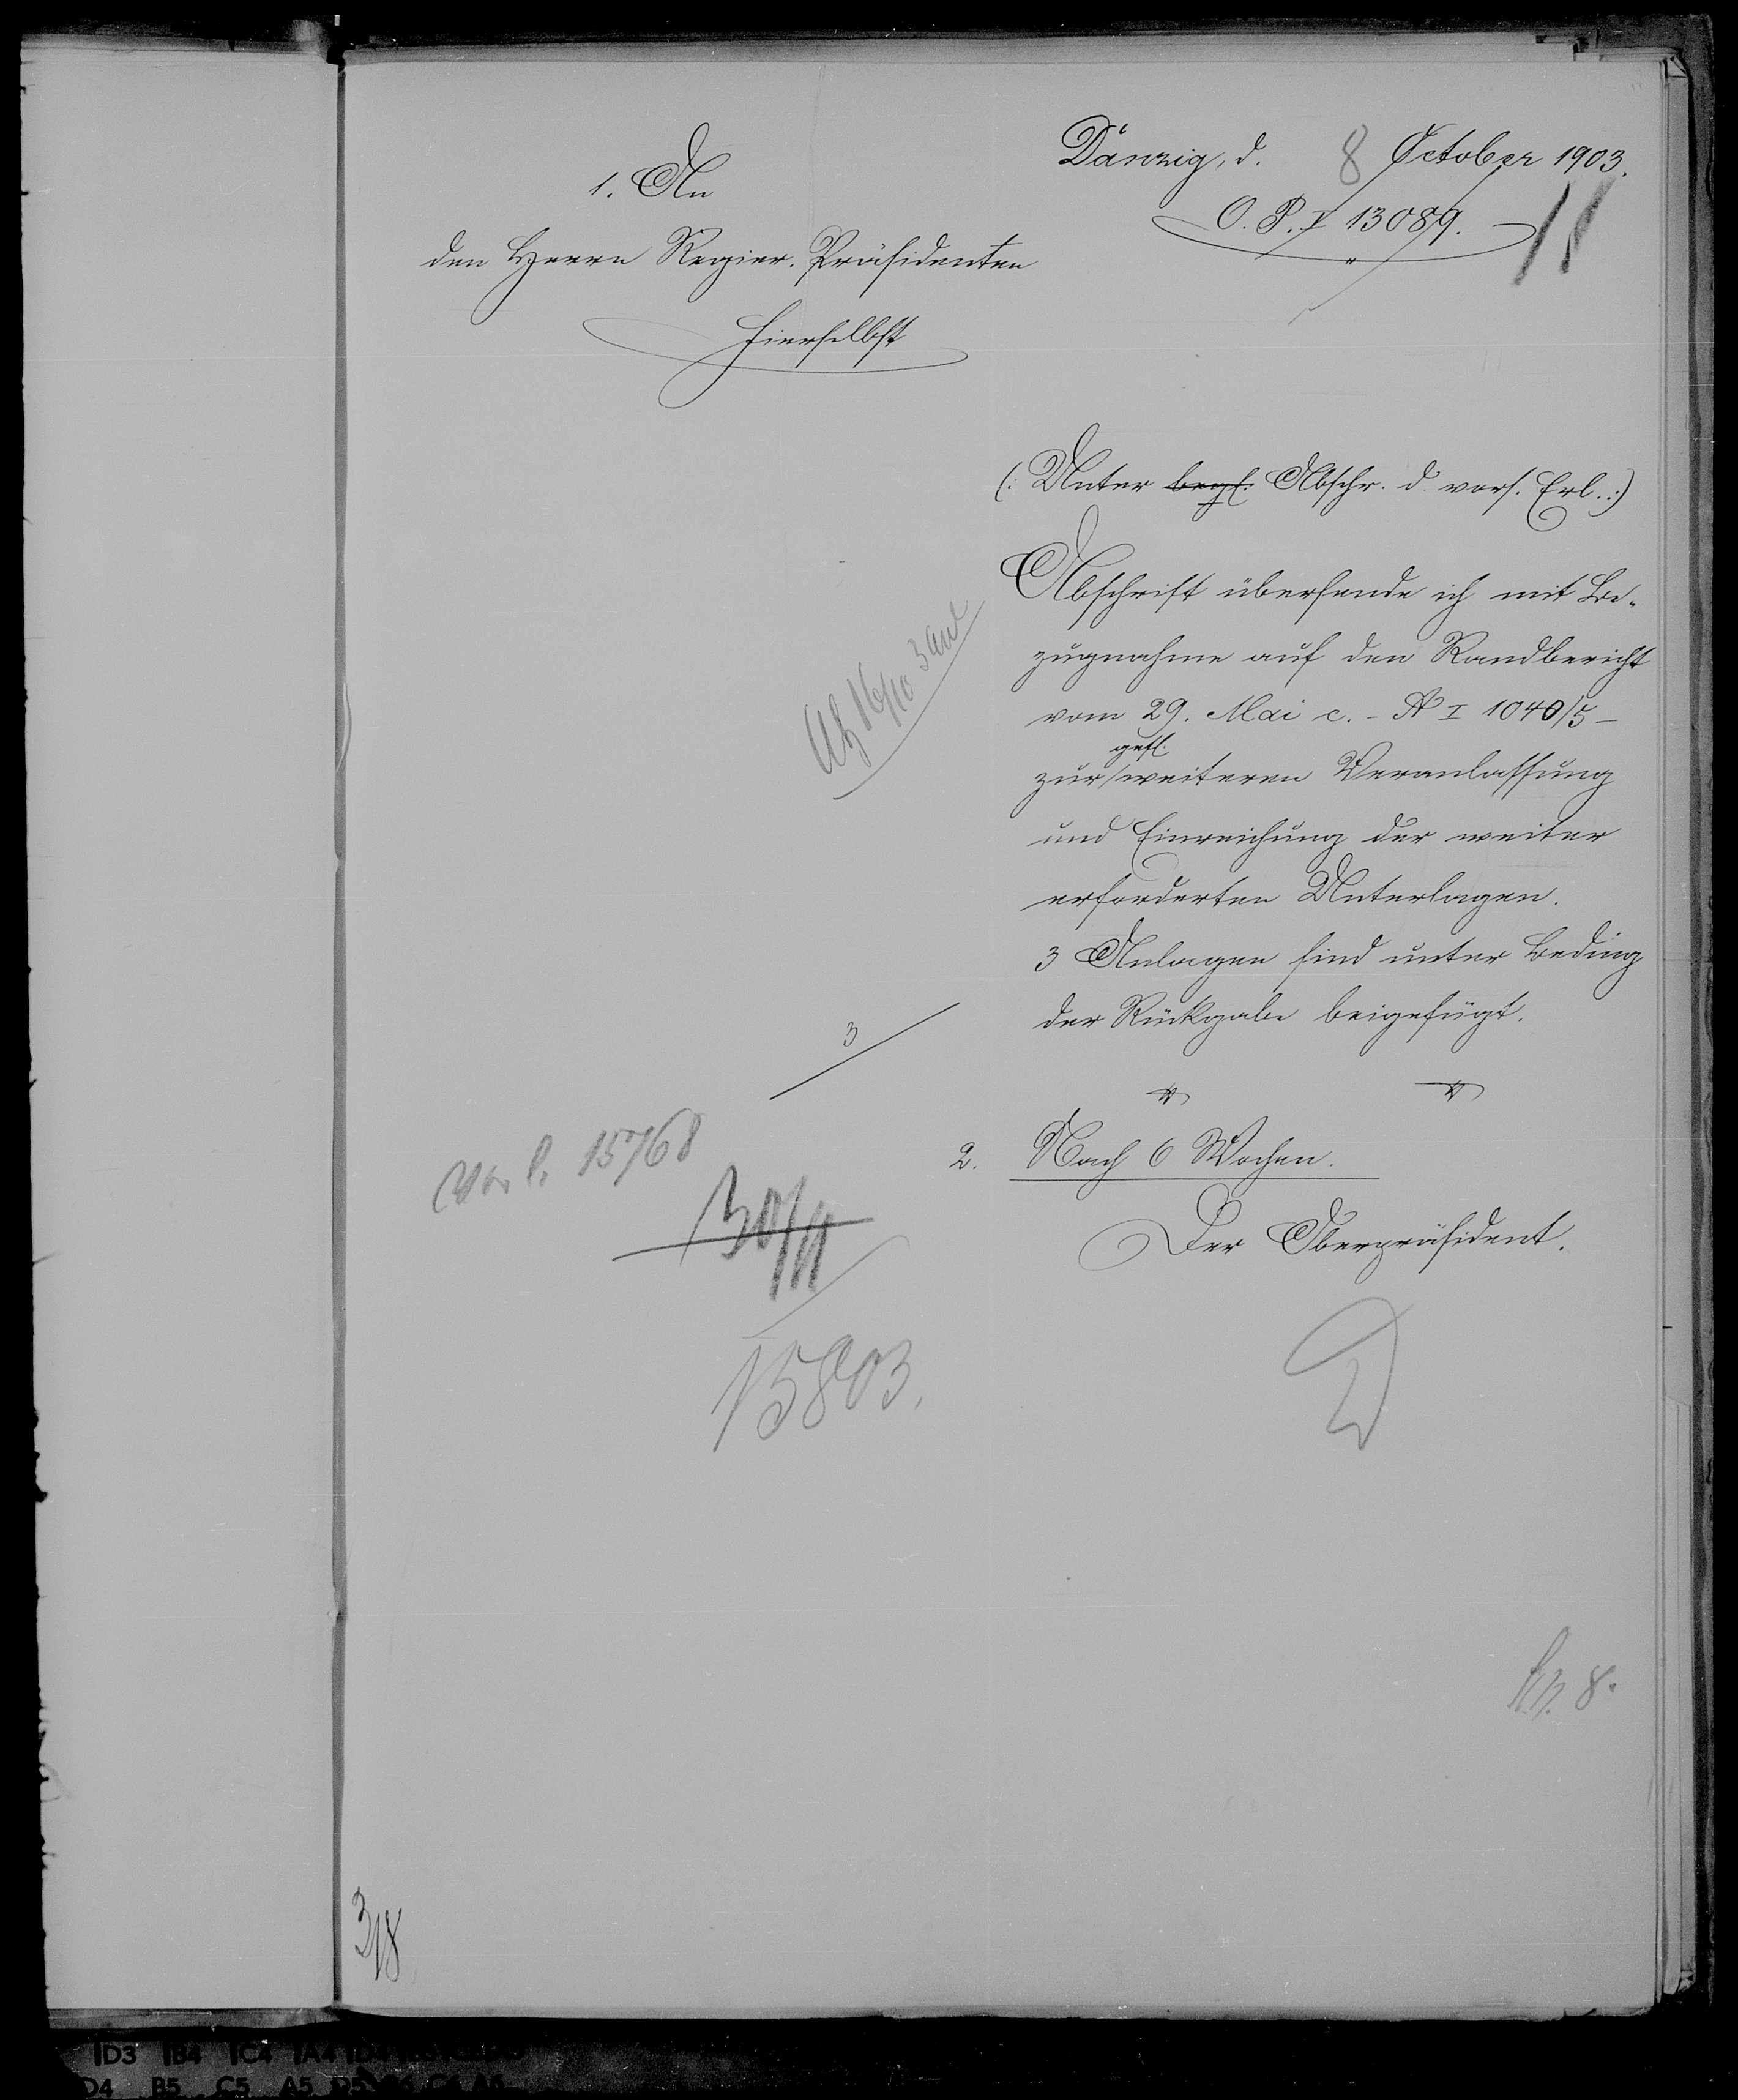 Danzig, d. 8 October 1903.
O. P. I 13089.
11
1. An
den Herrn Regier. Präsidenten
hierselbst
(: Unter begl. Abschr. d. vors. Erl. :)
Abschrift übersende ich mit Be-
zugnahme auf den Randbericht
vom 29. Mai c. - A I 1040/5 -
gefl.
zur weiteren Veranlassung
und Einreichung der weiter
erforderten Unterlagen.
3 Anlagen sind unter Beding
der Rückgabe beigefügt.
16/10 3 Anl
3
2. Nach 6 Wochen.
Der Oberpräsident.
15768
30/11
15803.
8.
3/8
D3 B4 C4 A4
D4 B5 C5 A5 D5